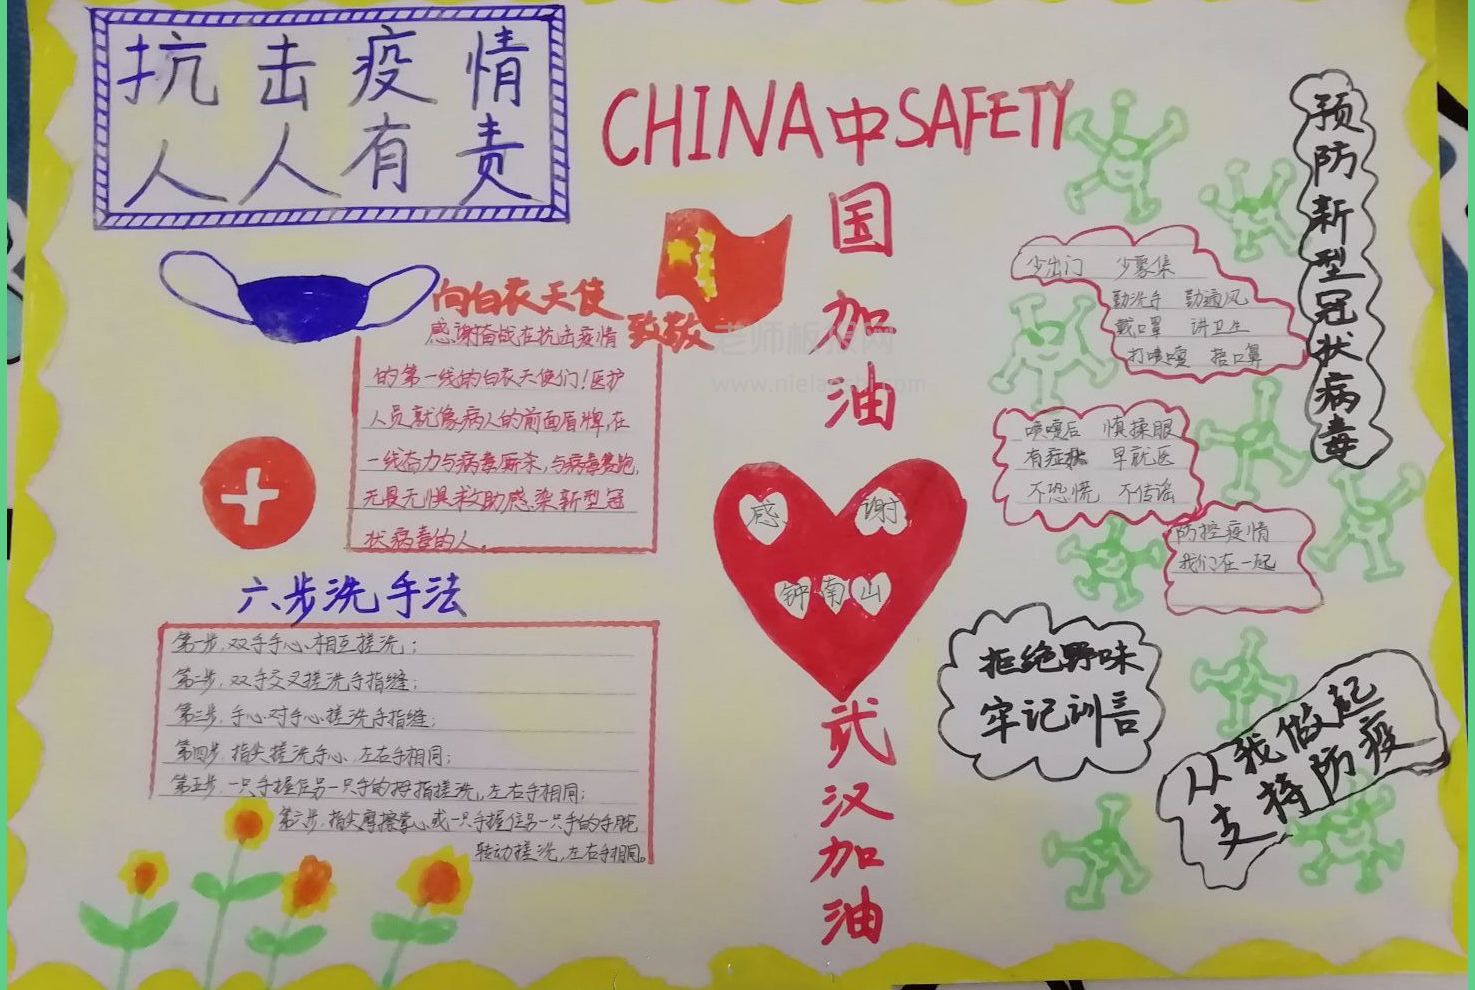 抗击疫情
人人有责
CHINA中SAFETY
国
加
油
向白衣天使
致敬
感谢奋战在抗击疫情
的第一线的白衣天使们!医护
人员就像病人的前面盾牌,在
一线奋力与病毒厮杀,与病毒赛跑,
无畏无惧救助感染新型冠
状病毒的人。
六步洗手法
第一步,双手手心相互搓洗;
第二步,双手交叉搓洗手指缝;
第三步,手心对手心搓洗手指缝;
第四步,指尖搓洗手心,左右手相同;
第五步,一只手握住另一只手的拇指搓洗,左右手相同;
第六步,指尖摩擦掌心或一只手握住另一只手的手腕
转动搓洗,左右手相同。
感谢
钟南山
武
汉
加
油
预
防
新
型
冠
状
病
毒
少出门 少聚集
勤洗手 勤通风
戴口罩 讲卫生
打喷嚏 捂口鼻
喷嚏后 慎揉眼
有症状 早就医
不恐慌 不传谣
防控疫情
我们在一起
拒绝野味
牢记训言
从我做起
支持防疫
老师板报网